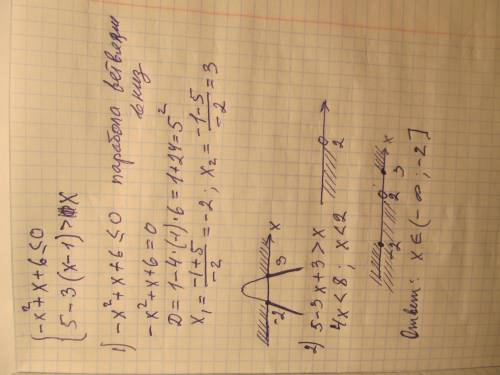 { -x² + x + 6 ≤ 0
5 - 3(x-1) > x
1) -x² + x + 6 ≤ 0 парабола ветвями вниз
-x² + x + 6 = 0
D = 1 - 4·(-1)·6 = 1 + 24 = 5²
x₁ = (-1+5)/(-2) = -2; x₂ = (-1-5)/(-2) = 3
-2 3 x
2) 5 - 3x + 3 > x
4x < 8; x < 2
2
-2 2 3 x
Ответ: x ∈ (-∞; -2]